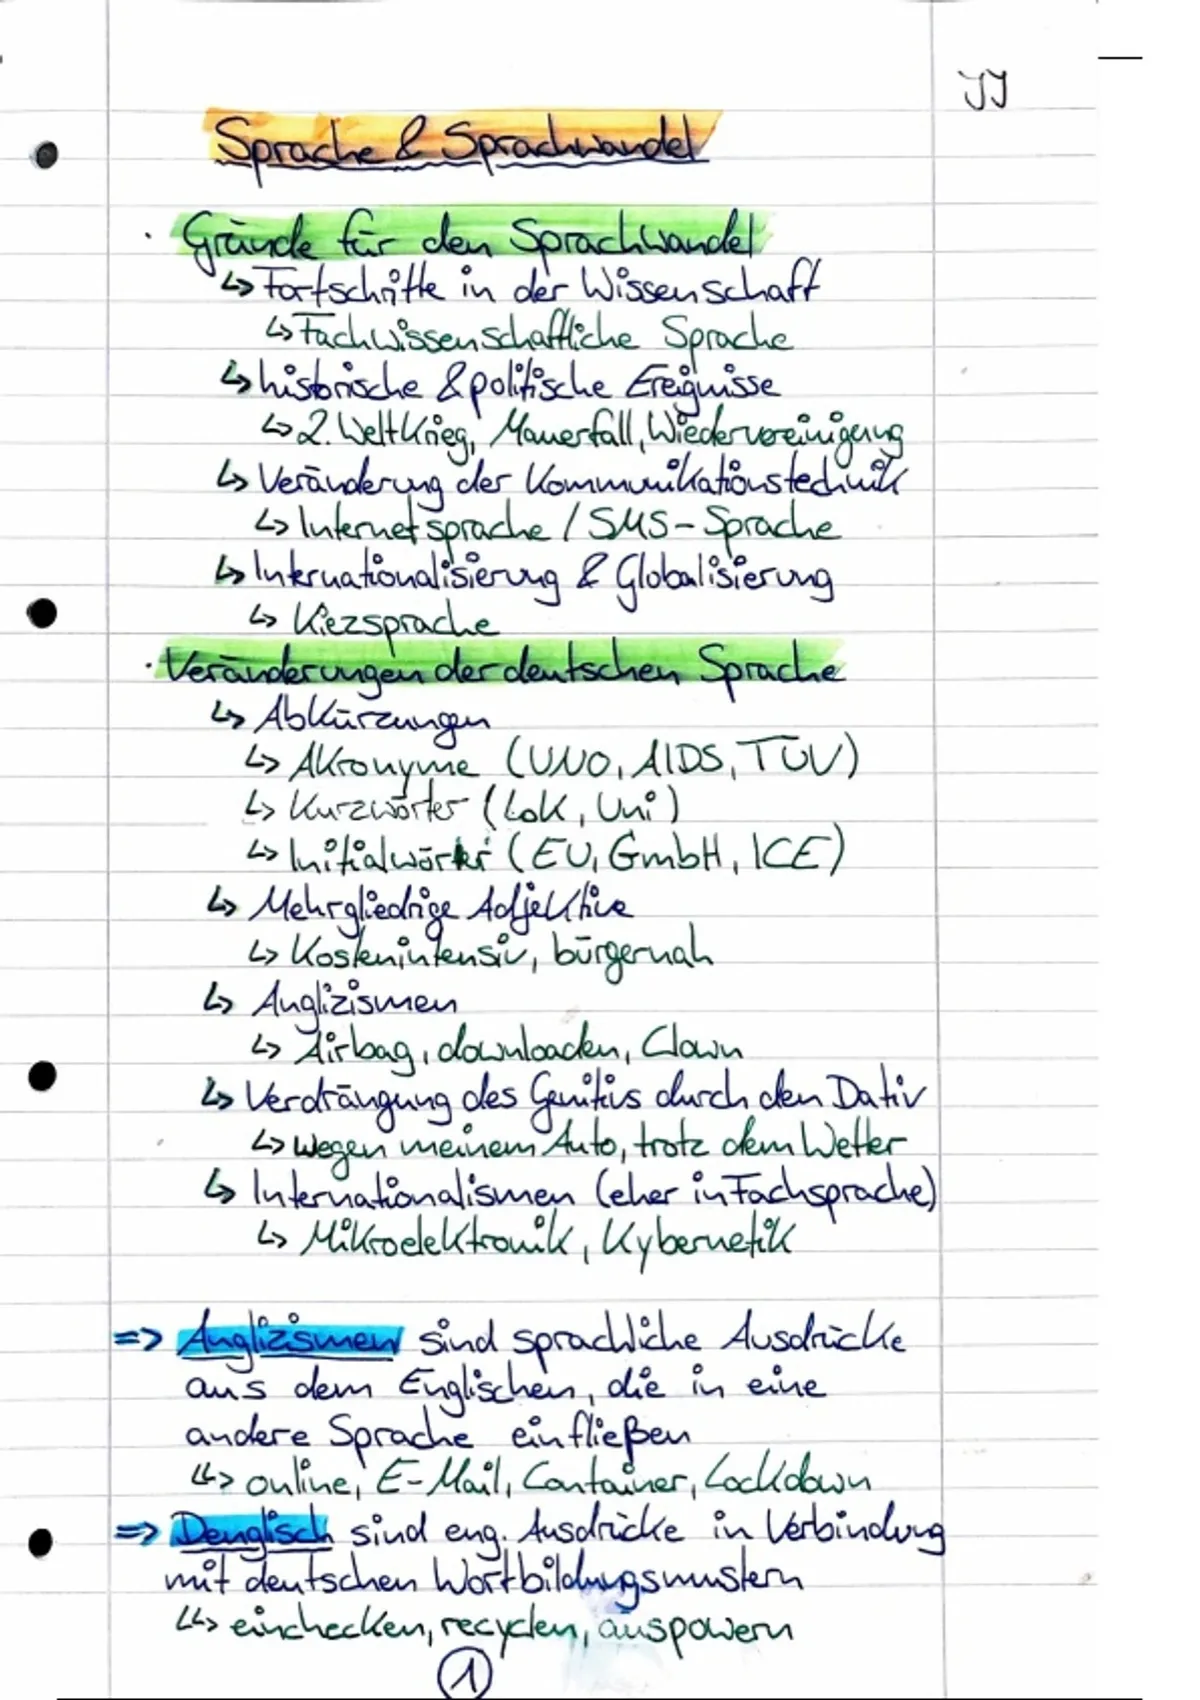 JJ
Sprache & Sprachwandel
· Gründe für den Sprachwandel
↳ Fortschritte in der Wissenschaft
↳ Fachwissenschaftliche Sprache
↳ historische & politische Ereignisse
↳ 2. Weltkrieg, Mauerfall, Wiedervereinigung
↳ Veränderung der Kommunikationstechnik
↳ Internetsprache / SMS-Sprache
↳ Internationalisierung & Globalisierung
↳ Kiezsprache
· Veränderungen der deutschen Sprache
↳ Abkürzungen
↳ Akronyme (UNO, AIDS, TÜV)
↳ Kurzwörter (Lok, Uni)
↳ Initialwörter (EU, GmbH, ICE)
↳ Mehrgliedrige Adjektive
↳ Kostenintensiv, bürgernah
↳ Anglizismen
↳ Airbag, downloaden, Clown
↳ Verdrängung des Genitivs durch den Dativ
↳ Wegen meinem Auto, trotz dem Wetter
↳ Internationalismen (eher in Fachsprache)
↳ Mikroelektronik, Kybernetik
=> Anglizismen sind sprachliche Ausdrücke
aus dem Englischen, die in eine
andere Sprache einfließen
↳ online, E-Mail, Container, Lockdown
=> Denglisch sind eng. Ausdrücke in Verbindung
mit deutschen Wortbildungsmustern
↳ einchecken, recyclen, auspowern
1